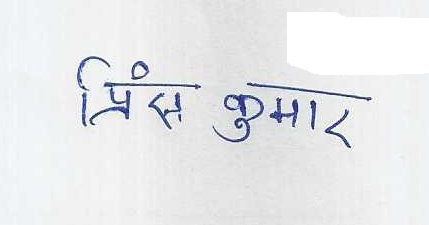 प्रिंस कुमार